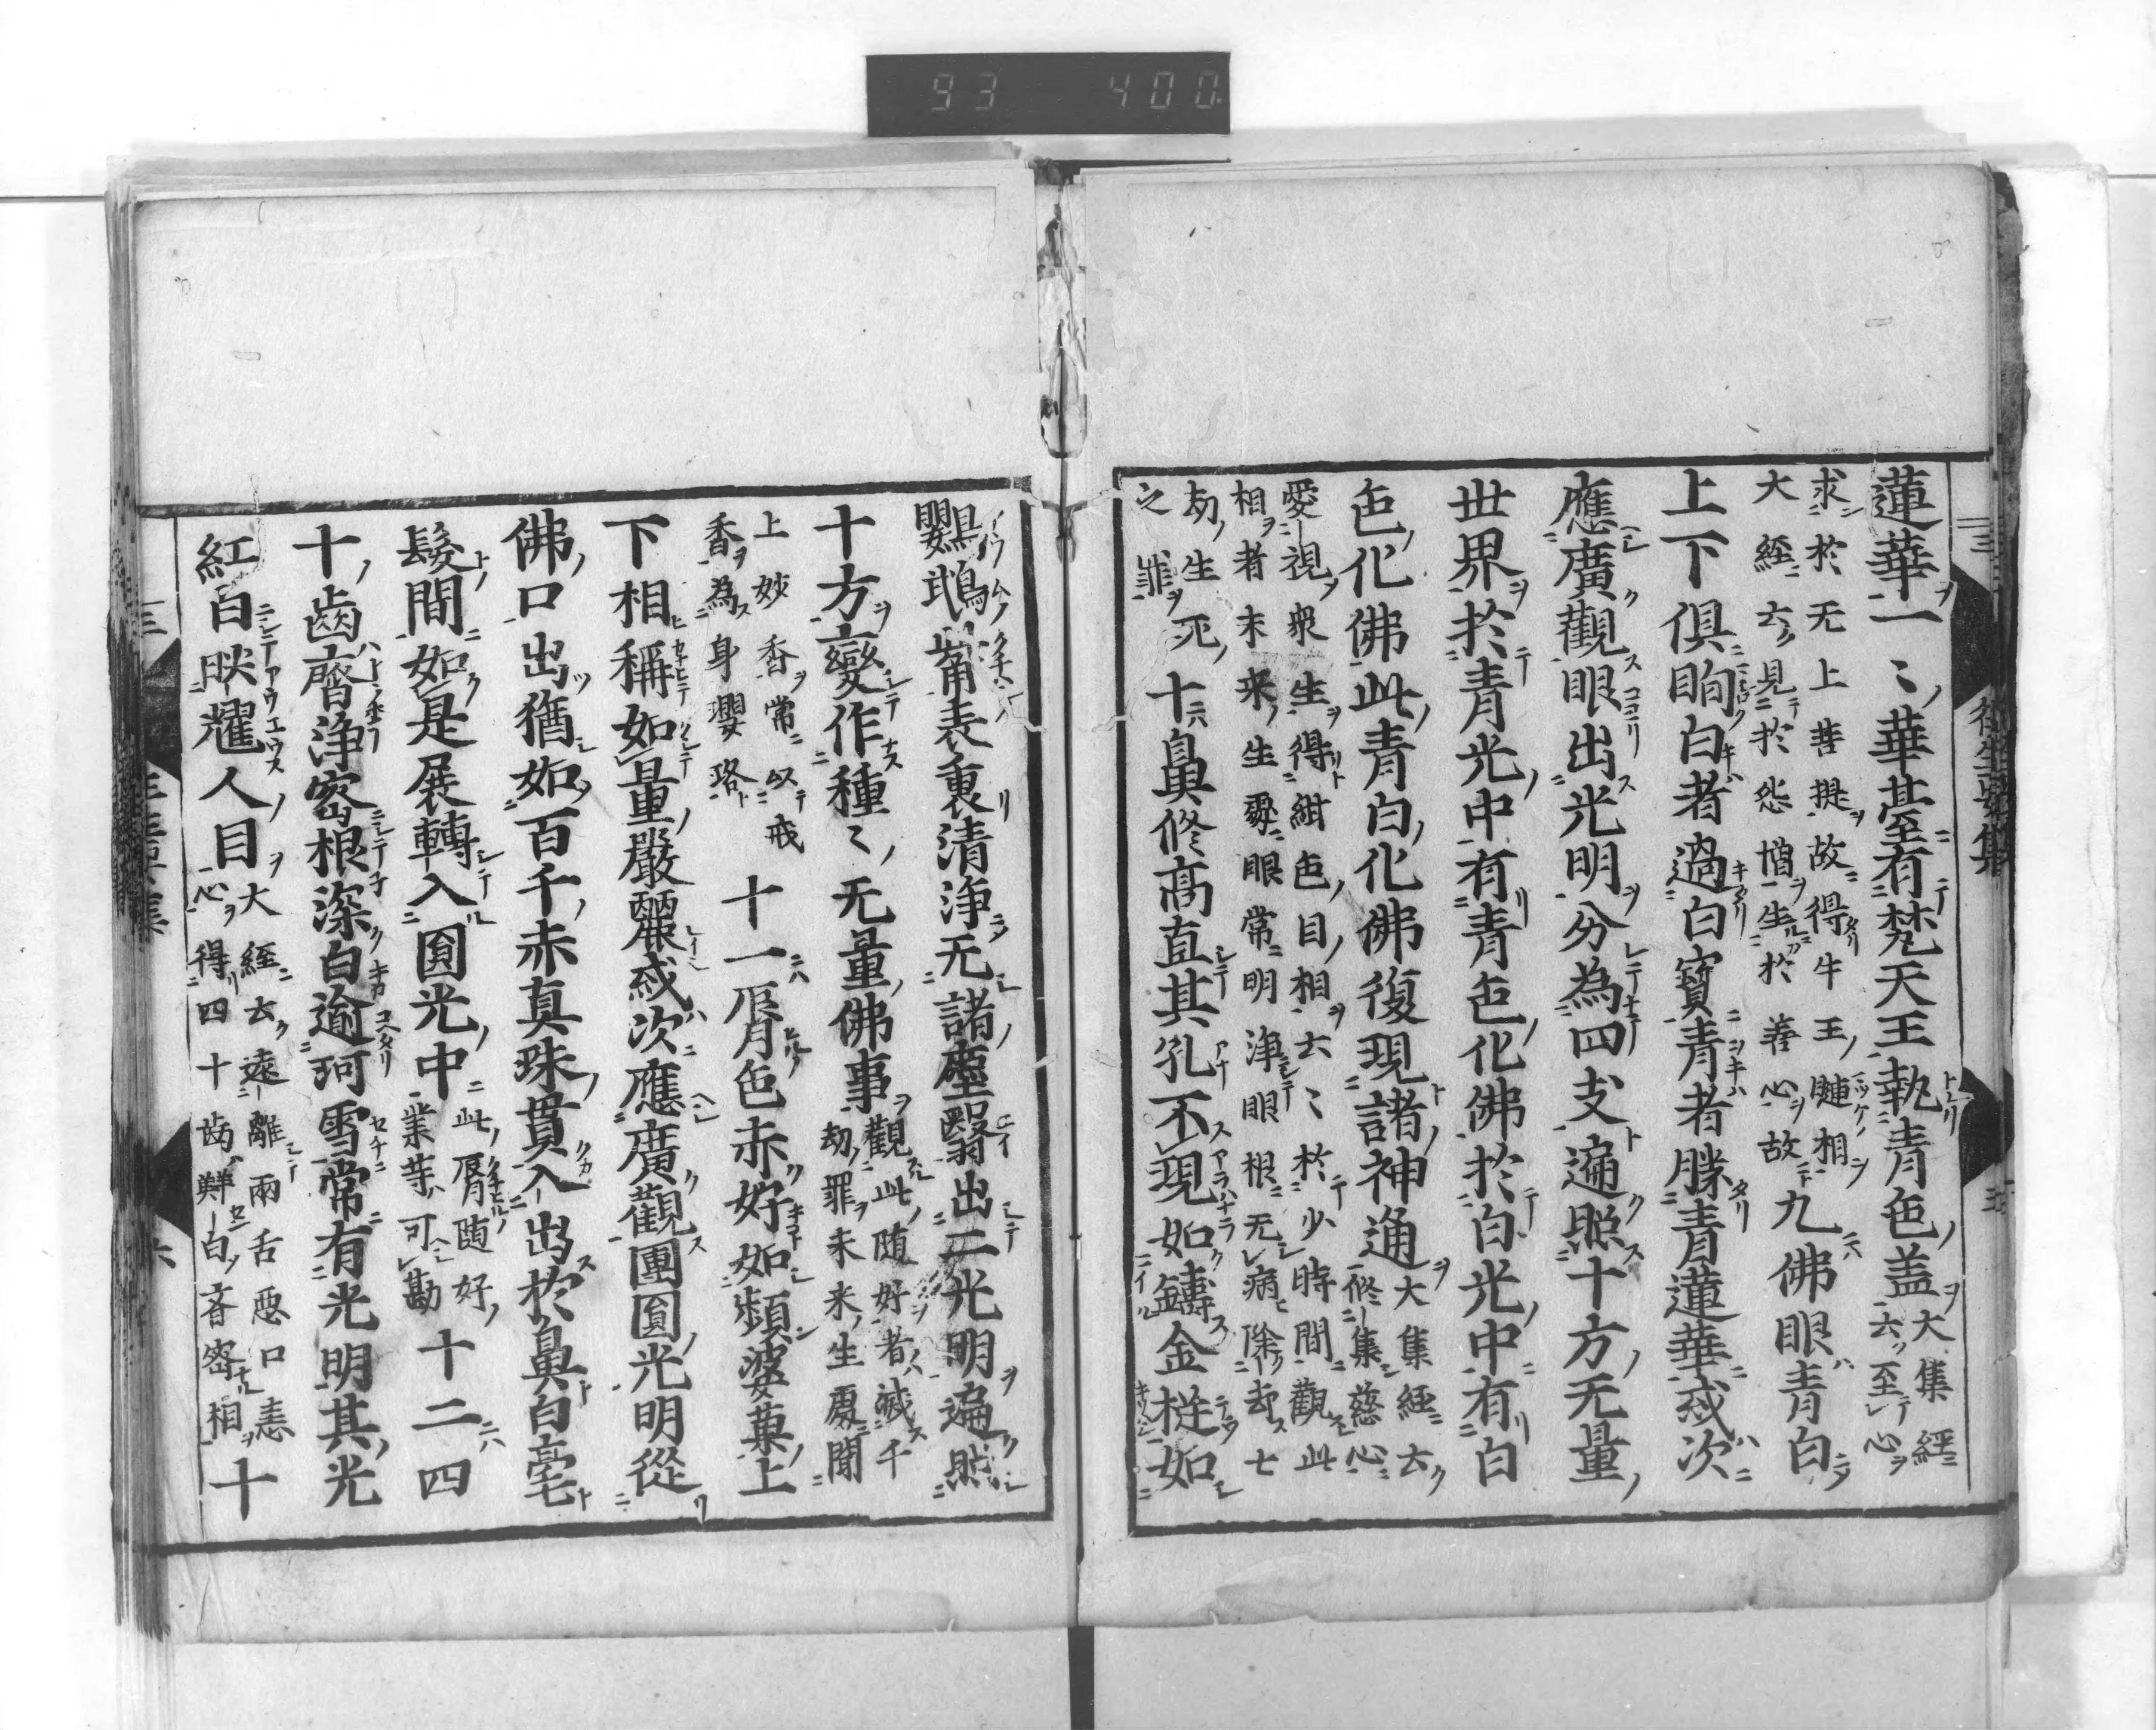 93 400
蓮華一〻華臺有梵天王執青色盖大集經
云至心
求於无上菩提故得牛王𥇒相
大經云見於怨憎生於善心故九佛眼青白
上下俱眴白者過白寶青者勝青蓮華或次
應廣觀眼出光明分為四支遍照十方无量
世界於青光中有青色化佛於白光中有白
色化佛此青白化佛復現諸神通大集經云
修集慈心
愛視衆生得紺色目相云〻於少時間觀此
相者未来生處眼常明淨眼根无病除却七
劫生死
之罪十鼻修高直其孔不現如鑄金梃如
鸚鵡觜表裏清淨无諸塵翳出二光明遍照
十方變作種〻无量佛事觀此随好者滅千
劫罪未来生處聞
上妙香常以戒
香為身瓔珞十一脣色赤好如頻婆菓上
下相稱如量嚴麗或次應廣觀團圓光明從
佛口出猶如百千赤真珠貫入出於鼻白毫
髮間如是展轉入圓光中此脣随好
業等可勘十二四
十齒齊淨密根深白逾珂雪常有光明其光
紅白映耀人目大經云遠離兩舌惡口恚
心得四十齒鮮白齊密相十